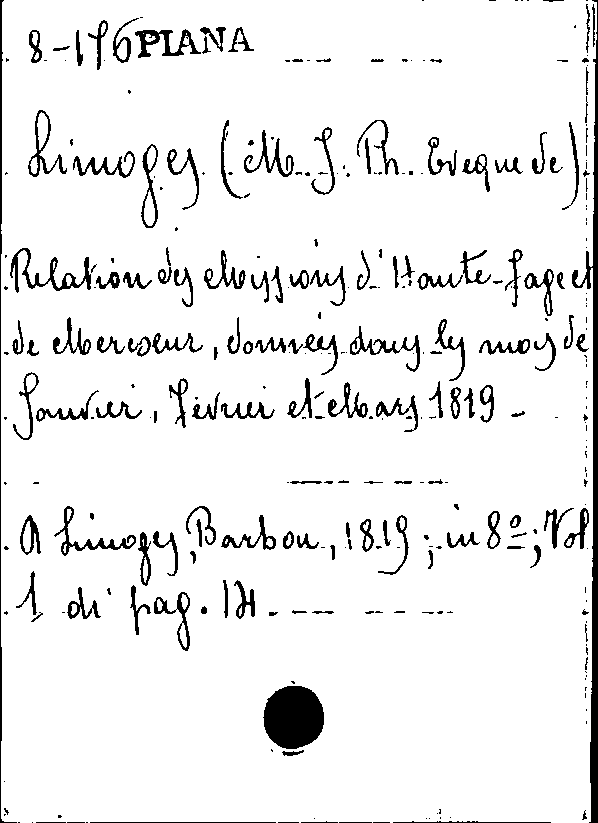 8-176 PIANA
Limoges (M. J. Ph. Eveque de)
Relation des Missions d'Haute-fage et
de Mercoeur, données dans les mois de
Janvier, Février et Mars 1819 -
A Limoges, Barbou, 1819; in 8º; Vol
1 di pag. 14.